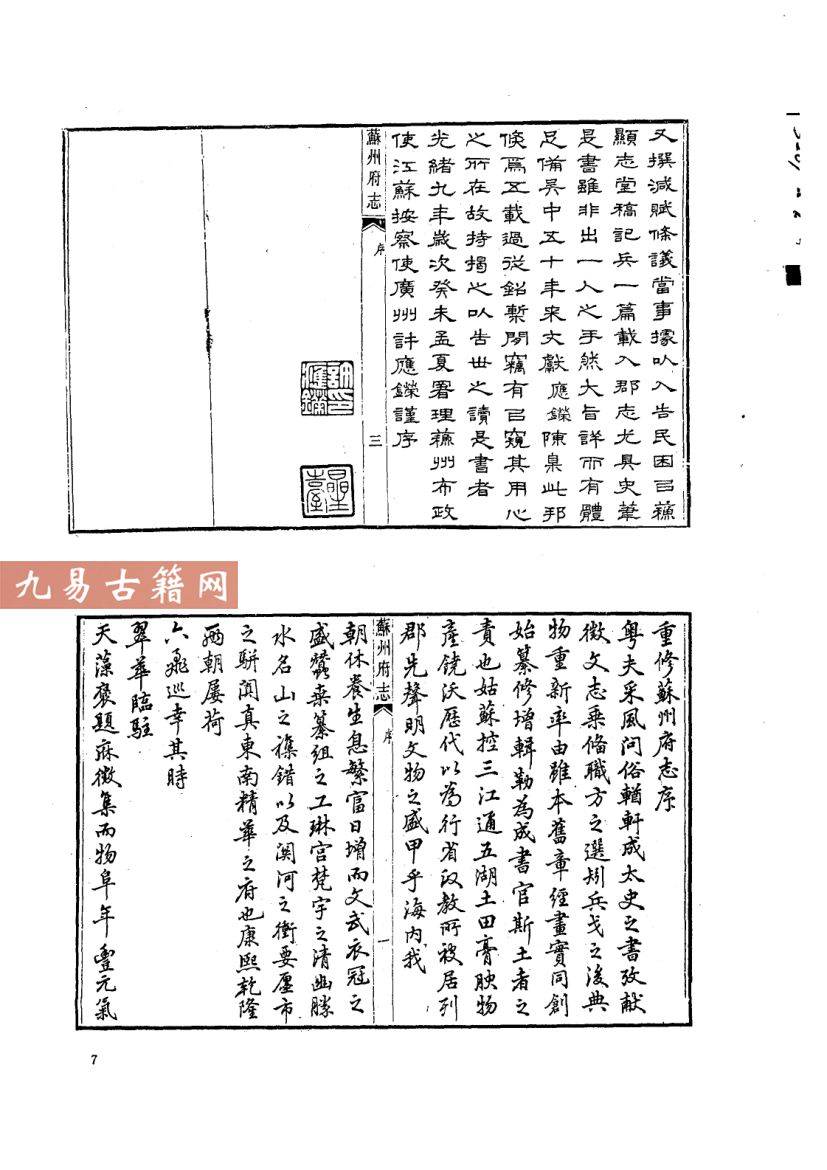 又撰減賦條議當事據以入告民困已蘇
顯志堂稿記兵一篇載入郡志尤具史筆
是書雖非出一人之手然大旨詳而有體
足備吳中五十年來文獻應鑅陳臬此邦
倏焉五載過從鉛槧閒竊有已窺其用心
之所在故持揭之以告世之讀是書者
光緒九年歲次癸未孟夏署理蘇州布政
使江蘇按察使廣州許應鑅謹序
蘇州府志
序
三
許印應鑅
星臺
九易古籍网
重修蘇州府志序
粵夫采風問俗輶軒成太史之書攷獻
徵文志乘偹職方之選矧兵戈之後典
物重新率由雖本舊章經畫實同創
始纂修增輯勒為成書官斯土者之
責也姑蘇控三江通五湖土田膏腴物
產饒沃歷代以為行省政教所被居列
郡先聲明文物之盛甲乎海內我
蘇州府志
序
一
朝休養生息繁富日增而文武衣冠之
盛蠶桒纂組之工琳宮梵宇之清幽勝
水名山之襍錯以及関河之衝要廛市
之駢闐真東南精華之府也康熙乾隆
兩朝屢荷
六飛巡幸其時
翠華臨駐
天藻褒題庥徵集而物阜年豐元氣
7